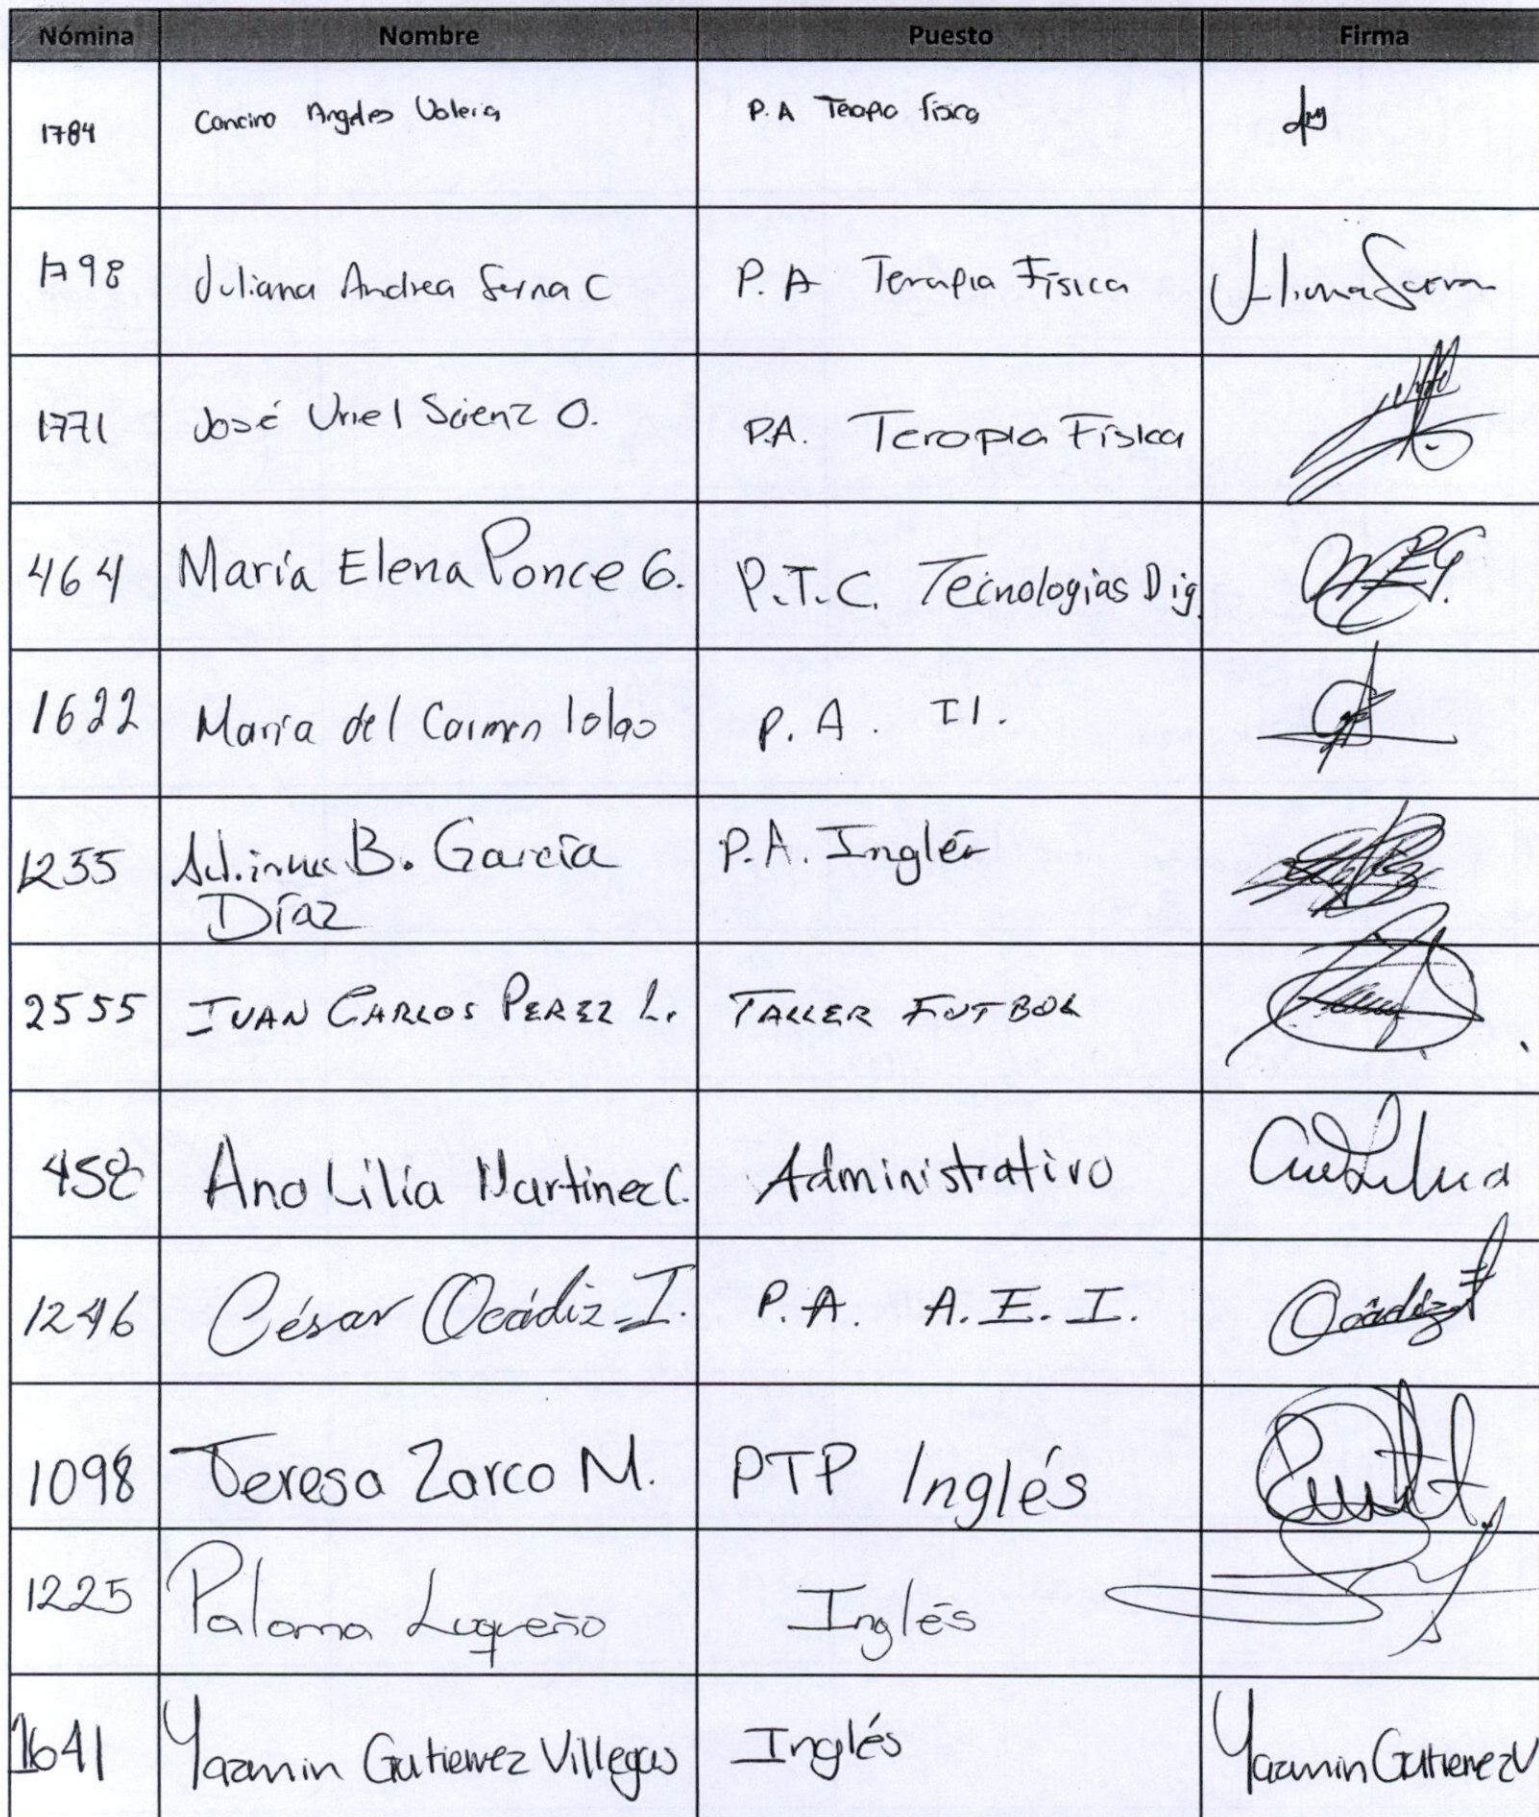 Nómina Nombre Puesto Firma
1784 Cancino Angeles Valeria P.A Terapia física
1798 Juliana Andrea Serna C P.A Terapia Física Juliana Serna
1771 José Uriel Saenz O. P.A. Terapia Física
464 María Elena Ponce G. P.T.C. Tecnologías Dig.
1622 María del Carmen P.A. II.
1255 B. García P.A. Inglés
Díaz
2555 IVAN CARLOS PEREZ L. TALLER FUTBOL
458 Ana Lilia Martínez C. Administrativo
1246 César Ocádiz I. P.A. A.E.I. Ocádiz
1098 Teresa Zarco M. PTP Inglés
1225 Paloma Luqueño Inglés
1641 Yazmin Gutierrez Villegas Inglés Yazmin Gutierrez V